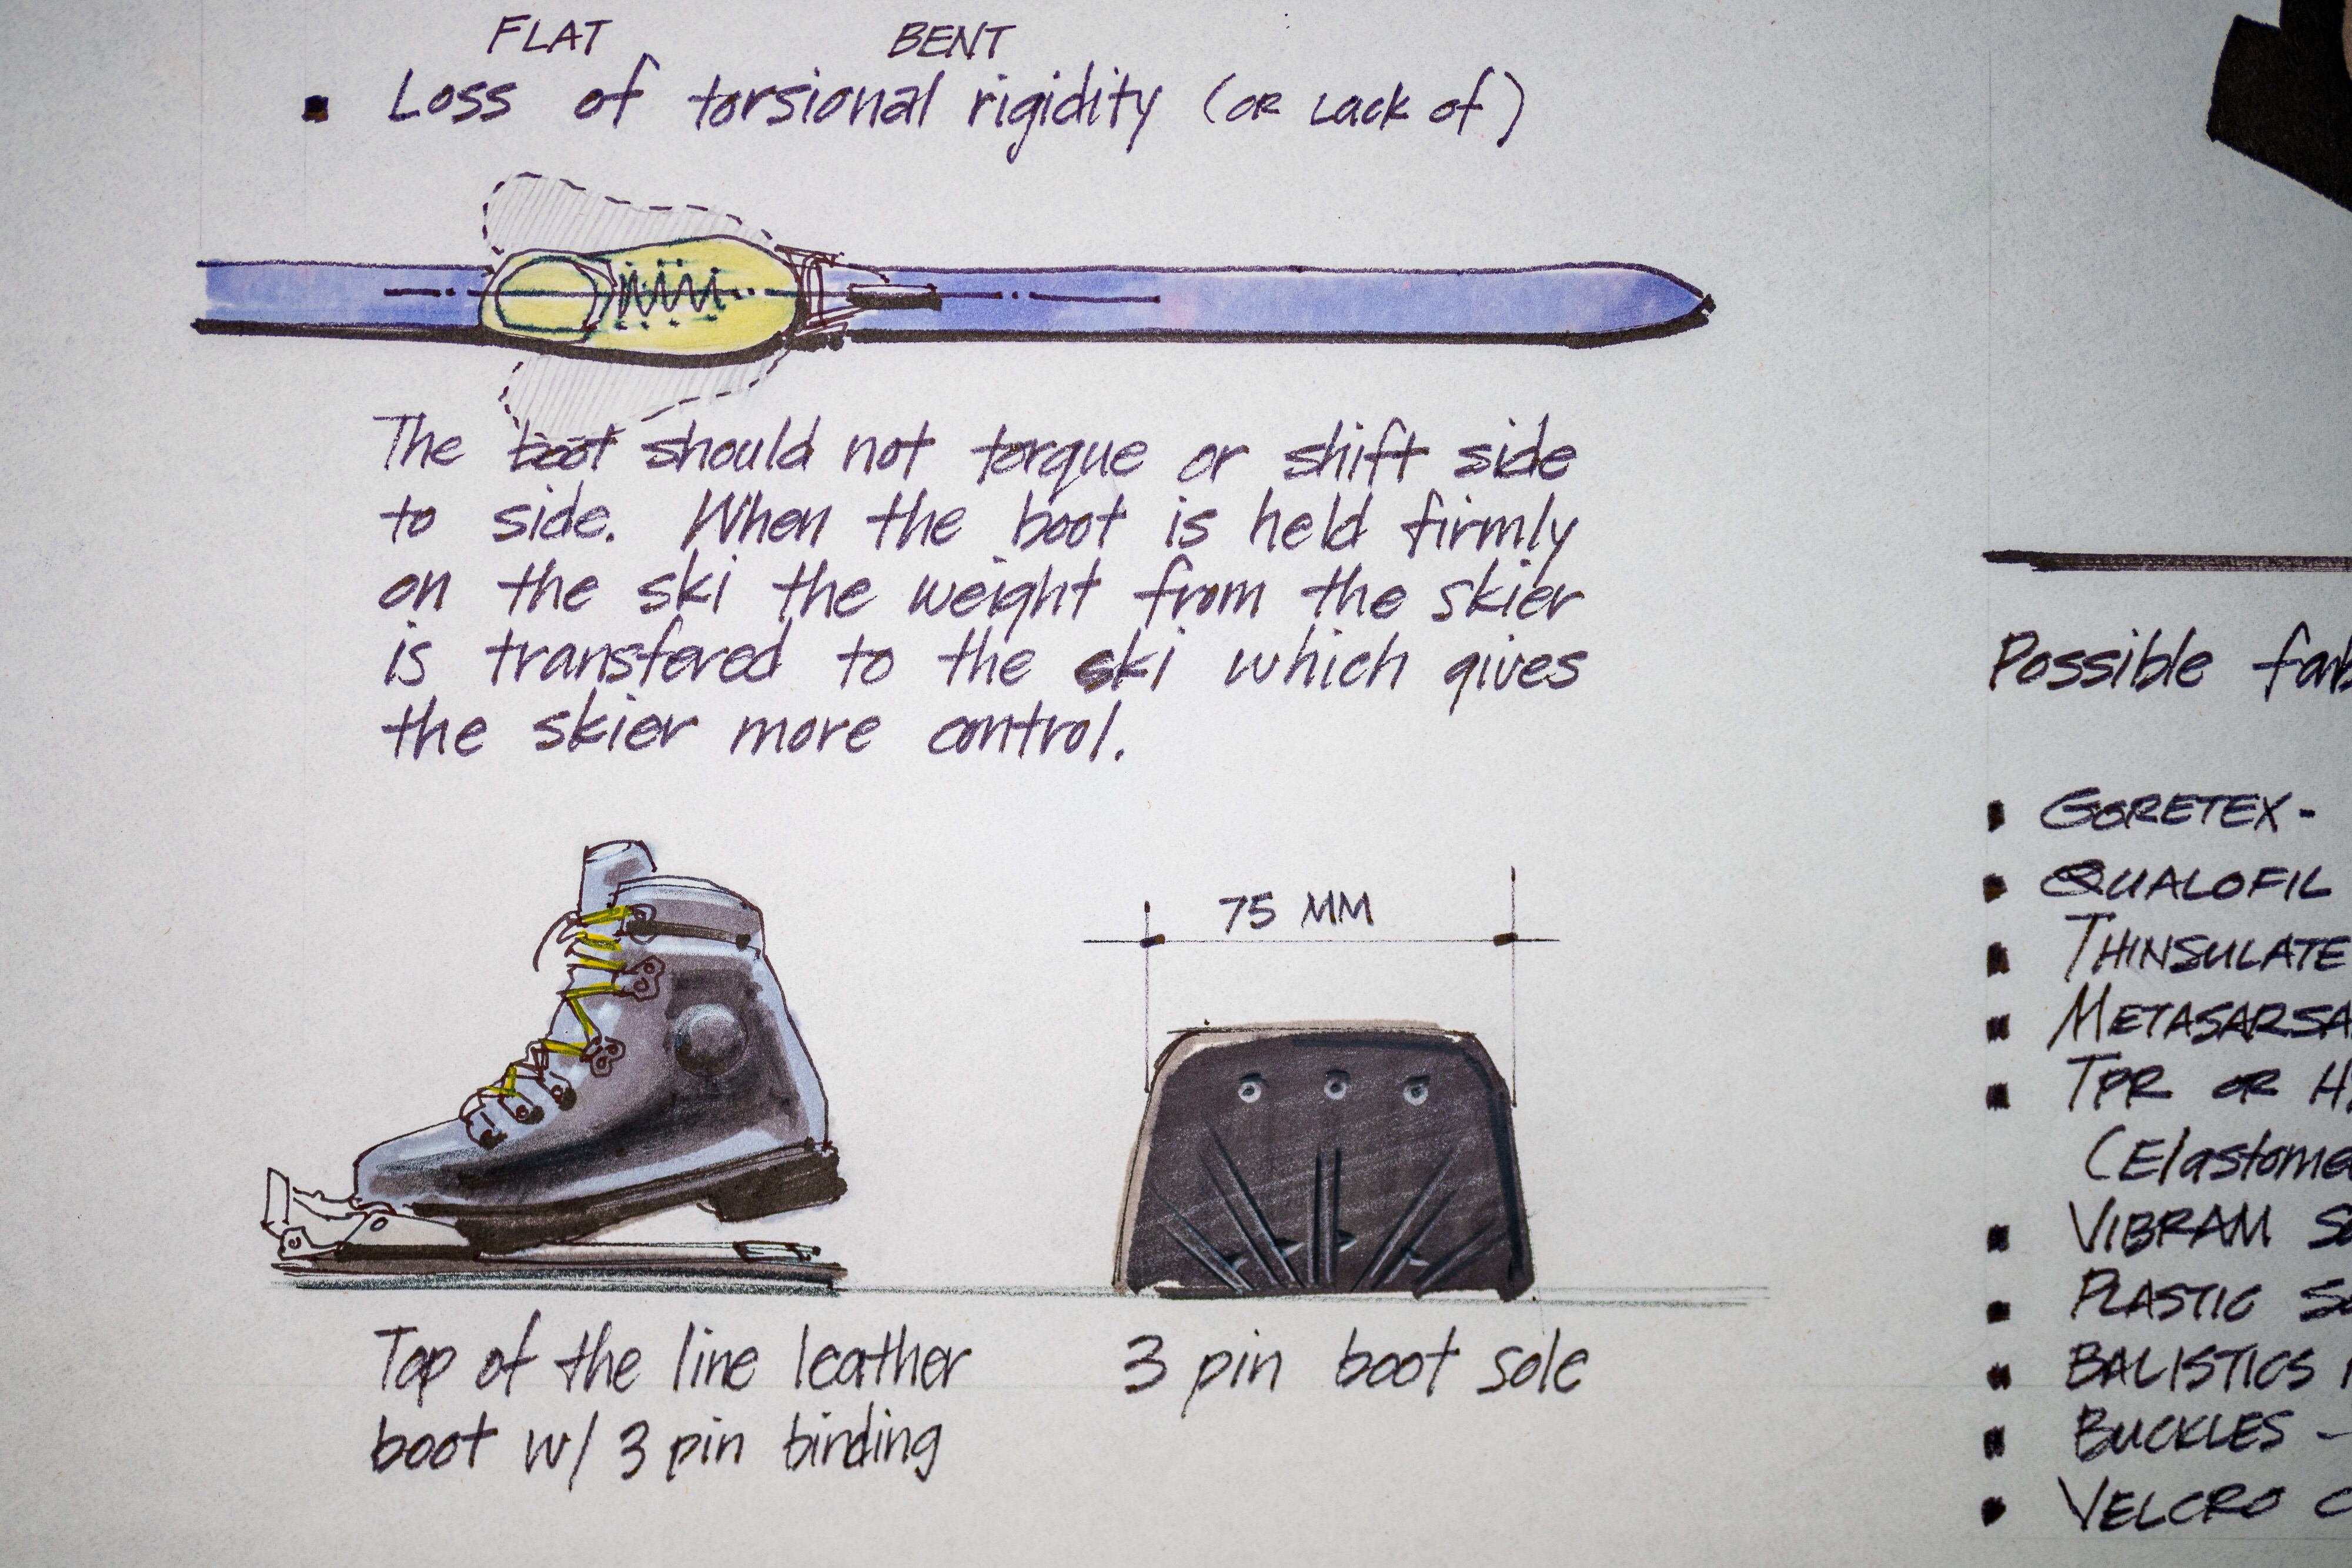 FLAT BENT
▪ Loss of torsional rigidity (or Lack of)
The boot should not torque or shift side
to side. When the boot is held firmly
on the ski the weight from the skier
is transfered to the ski which gives
the skier more control.
75 MM
Top of the line leather
boot w/ 3 pin binding
3 pin boot sole
Possible
▪ GORETEX -
▪ QUALOFIL
▪ THINSULATE
▪ METASARSA
▪ TPR OR H
(Elastome
▪ VIBRAM
▪ PLASTIC
▪ BALISTICS
▪ BUCKLES -
▪ VELCRO